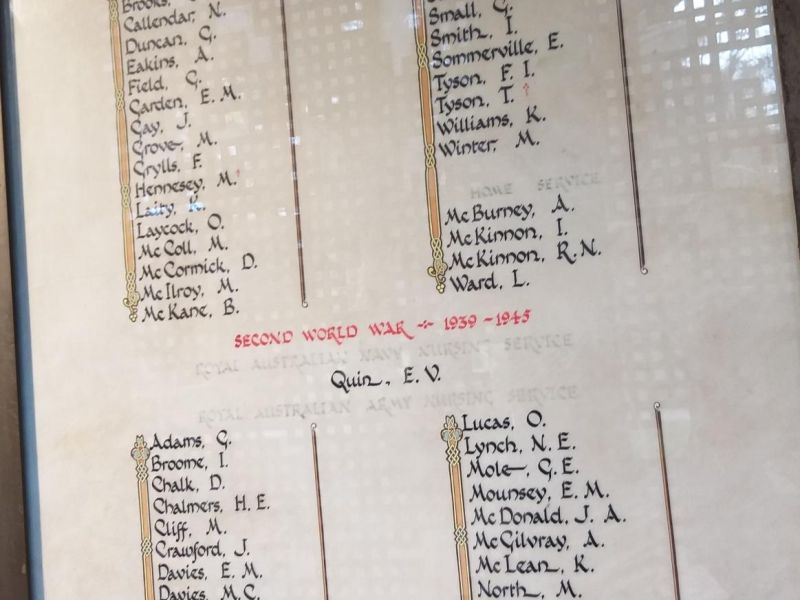 Brooks,
Callendar, N.
Duncan, G.
Eakins, A.
Field, G.
Garden, E. M.
Gay, J.
Grove, M.
Grylls, F.
Hennesey, M.†
Laity, K.
Laycock, O.
McColl, M.
McCormick, D.
McIlroy, M.
McKane, B.
Small, G.
Smith, I.
Sommerville, E.
Tyson, F. I.
Tyson, T. †
Williams, K.
Winter, M.
HOME SERVICE
McBurney, A.
McKinnon, I.
McKinnon, R. N.
Ward, L.
SECOND WORLD WAR 1939 - 1945
ROYAL AUSTRALIAN NAVY NURSING SERVICE
Quin, E. V.
ROYAL AUSTRALIAN ARMY NURSING SERVICE
Adams, G.
Broome, I.
Chalk, D.
Chalmers, H. E.
Cliff, M.
Crawford, J.
Davies, E. M.
Davies, M. C.
Lucas, O.
Lynch, N. E.
Mole, G. E.
Mounsey, E. M.
McDonald, J. A.
McGilvray, A.
McLean, K.
North, M.